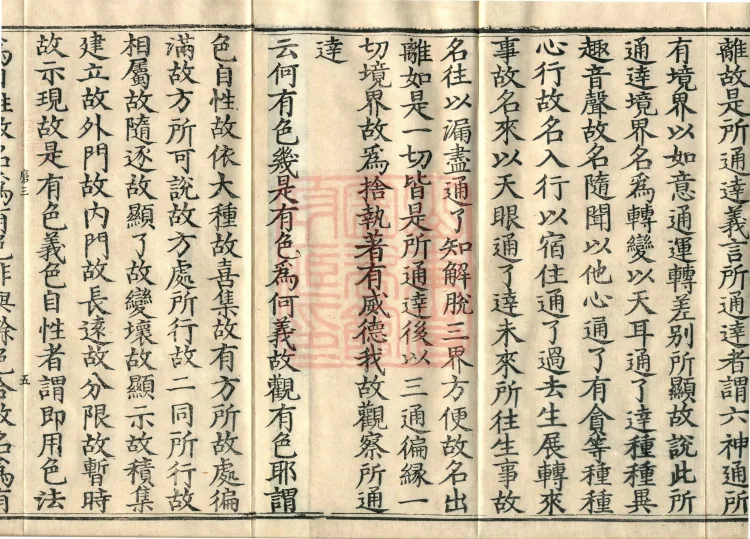 離故是所通達義言所通達者謂六神通所
有境界以如意通運轉差別所顯故說此所
通達境界名爲轉變以天耳通了達種種異
趣音聲故名隨聞以他心通了有貪等種種
心行故名入行以宿住通了過去生展轉來
事故名來以天眼通了達未來所往生事故
名往以漏盡通了知解脫三界方便故名出
離如是一切皆是所通達後以三通徧緣一
切境界故爲捨執著有威德我故觀察所通
達
云何有色幾是有色爲何義故觀有色耶謂
色自性故依大種故喜集故有方所故處徧
滿故方所可說故方處所行故二同所行故
相屬故隨逐故顯了故變壞故顯示故積集
建立故外門故內門故長遠故分限故暫時
故示現故是有色義色自性者謂即用色法
三
五
爲自性故名爲有色非與餘色合故名爲有